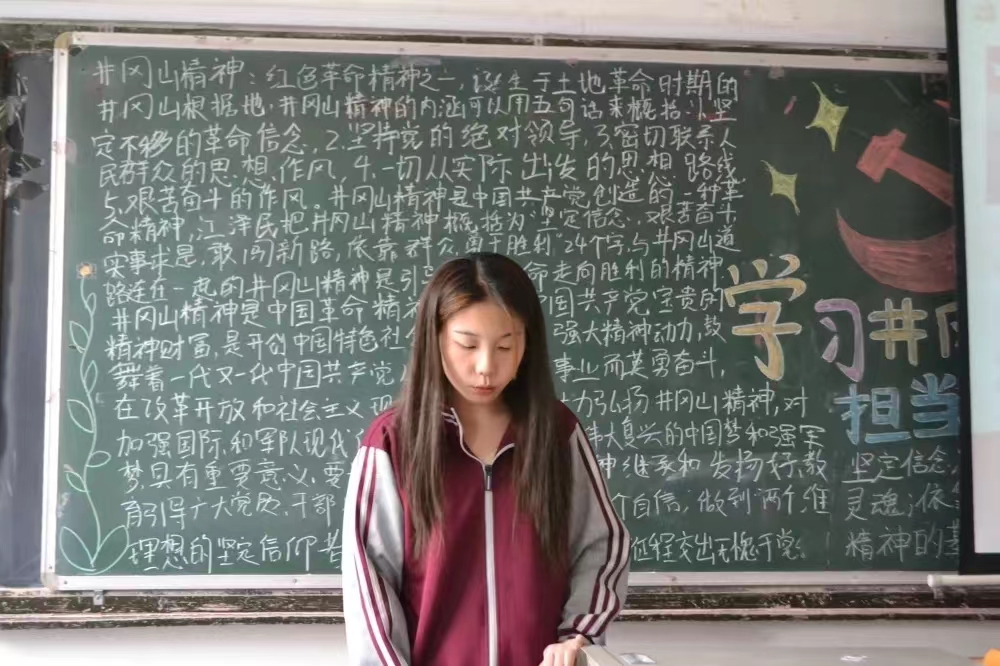 井冈山精神：红色革命精神之一，诞生于土地革命时期的
井冈山根据地，井冈山精神的内涵可以用五句话来概括：1.坚
定不移的革命信念，2.坚持党的绝对领导，3.密切联系人
民群众的思想作风，4.一切从实际出发的思想路线，
5.艰苦奋斗的作风。井冈山精神是中国共产党创造的一种革
命精神，江泽民把井冈山精神概括为“坚定信念、艰苦奋斗，
实事求是、敢闯新路，依靠群众、勇于胜利”24个字，与井冈山道
路连在一起的井冈山精神是引 命走向胜利的精神.
井冈山精神是中国革命精神 国共产党宝贵的
精神财富，是开创中国特色社会 强大精神动力，鼓
舞着一代又一代中国共产党 事业而英勇奋斗，
在改革开放和社会主义现 力弘扬井冈山精神，对
加强国际和军队现代 伟大复兴的中国梦和强军
梦，具有重要意义，要 神继承和发扬好，教
育引导广大党员、干部 个自信，做到两个维
理想的坚定信仰者 征程交出无愧于党
学习井冈
担当
坚定信念，
灵魂；依
精神的基